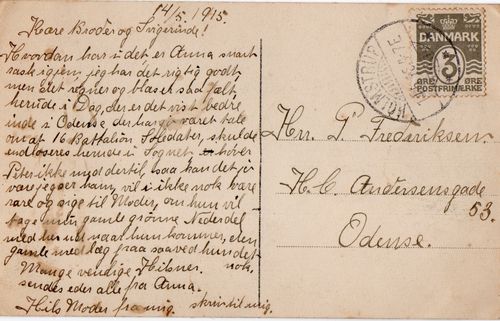 14/5. 1915.
Kære Broder og Svigerinde!
Hvordan har i det er Anna snart
rask igen, jeg har det rigtig godt
men det regner og blæser saa fælt
herude i Dag, der er det vist bedre
inde i Odense, der har været tale
om at 16 Battallion Soldater, skulde
indlogeres herude i Sognet
Peter ikke med dertil, saa kan det jo
være jeg ser ham, vil i ikke nok være
rare og sige til Moder, om hun vil
tage min gamle grønne Nederdel
med her ud naar hun kommer, den
gamle med læg fraa saa ved hun det nok.
Mange venlige Hilsner
sendes eder alle fra Anna.
Hils Moder fra mig. skriv til mig.
DANMARK
3
ØRE ØRE
POSTFRIMÆRKE
Hrr. P. Frederiksen.
H. C. Andersensgade
53.
Odense.